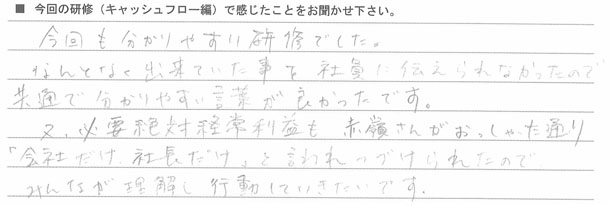 ■ 今回の研修（キャッシュフロー編）で感じたことをお聞かせ下さい。
今回も分かりやすい研修でした。
なんとなく出来ていた事を社員に伝えられなかったので
共通で分かりやすい言葉が良かったです。
又、必要絶対経常利益も赤嶺さんがおっしゃった通り
「会社だけ、社長だけ」と言われつづけられたので、
みんなが理解し行動していきたいです。